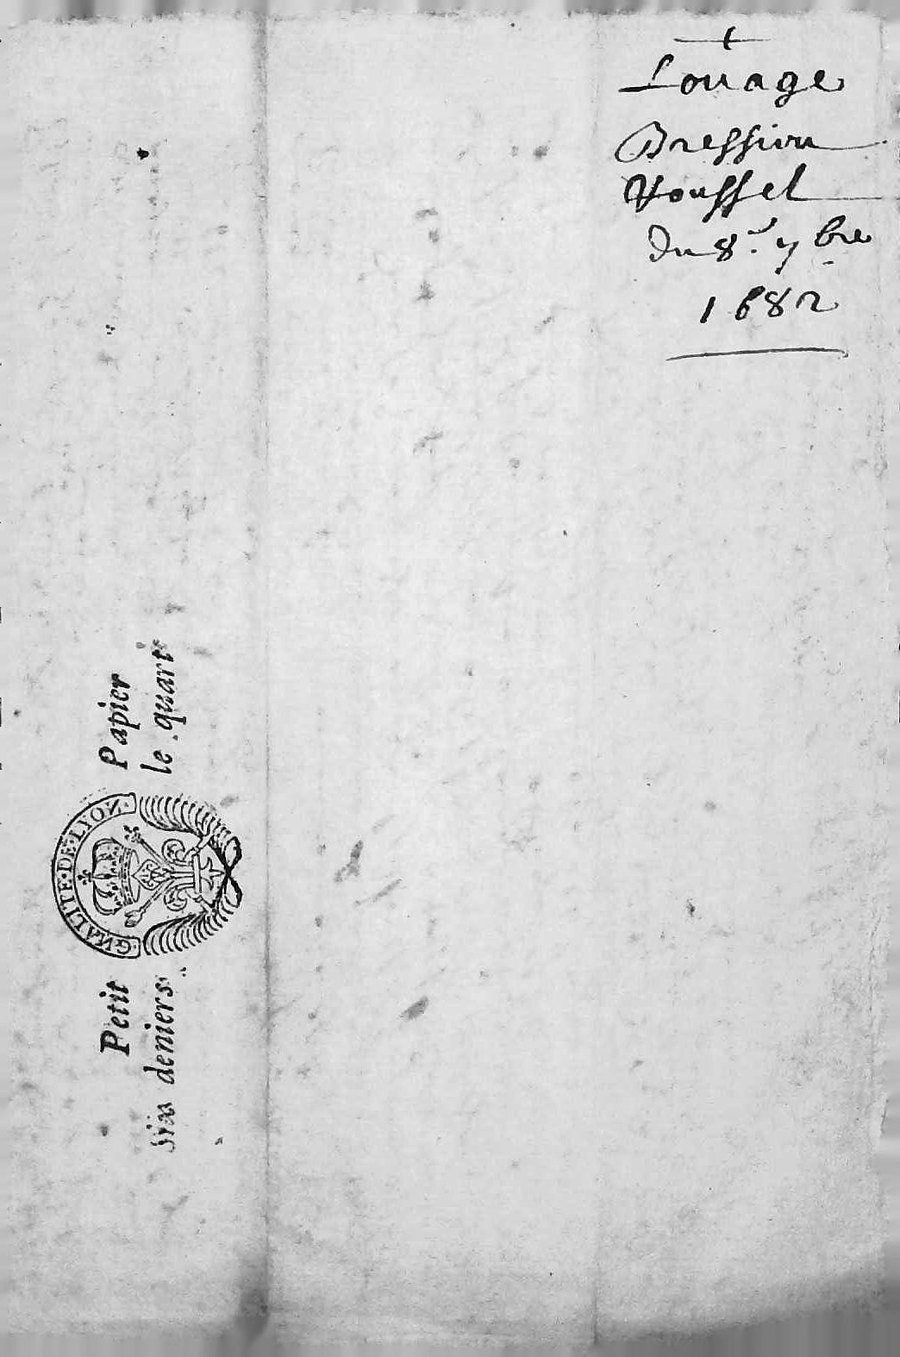 Louage
Bression
Roussel
Du 8.e 7bre
1682
Petit Papier
six deniers le quart
G'NALITE·DE·LYON·